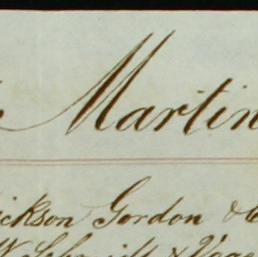 Martin
ickson Gordon & C
W Schmidt & Voge